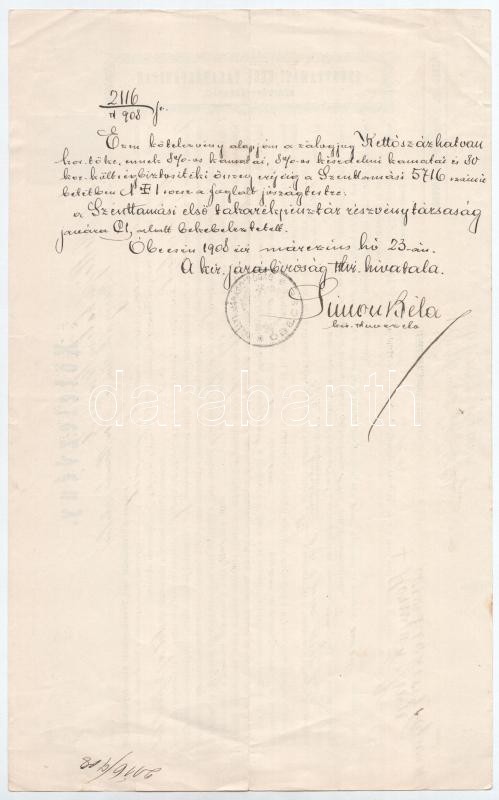 2116
908
Ezen kötelezvény alapján a zálogjog Kettőszázhatvan
kor. tőke, ennek 8%-os kamatai, 8%-os késedelmi kamatai és 80
kor. költségbiztositéki összeg erejéig a Szenttamási 5716 számú
betétben I 1 sorsz a foglalt jószágtestre.
a Szenttamási első takarékpénztár részvénytársaság
javára C1, alatt bekebeleztetett.
Óbecsén 1908 évi márczius hó 23-án.
A kir. járásbíróság tkvi. hivatala.
Simon Béla
kir. tkvvezető
darabanth
Kötelezvény.
2116/908